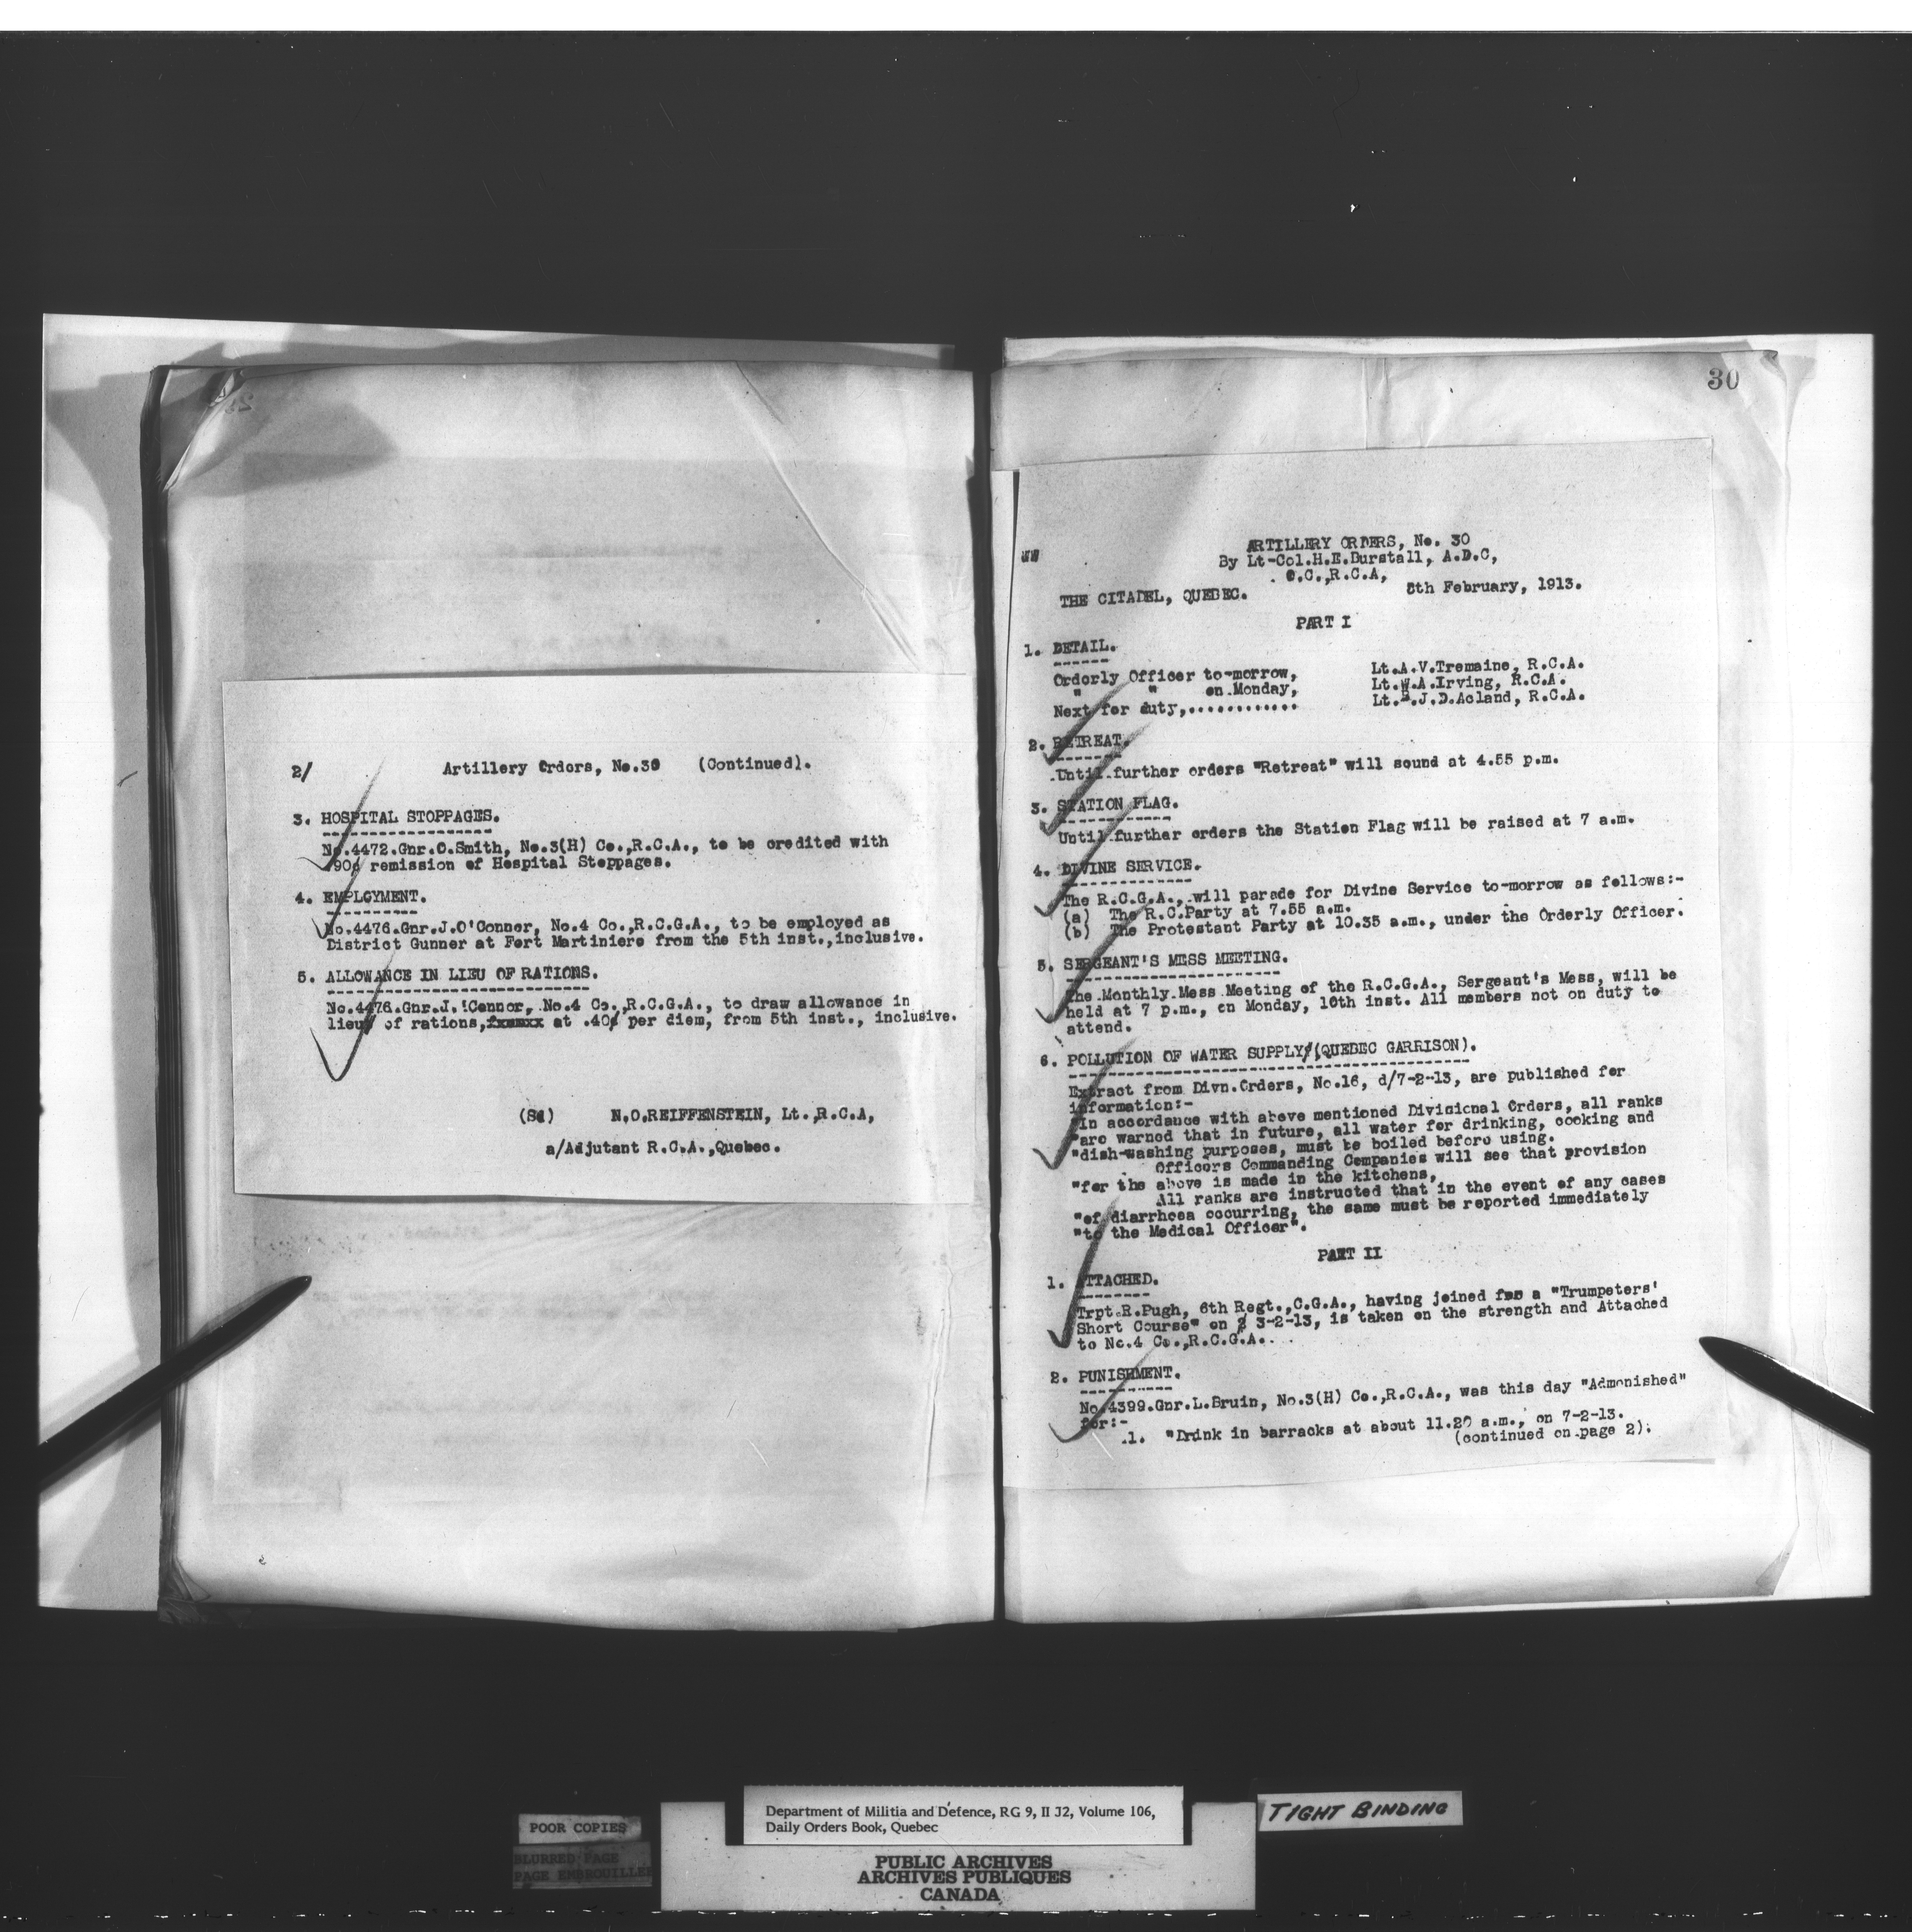 2/ Artillery Orders, No.30 (Continued).
3. HOSPITAL STOPPAGES.
No.4472.Gnr.C.Smith, No.3(H) Co.,R.C.A., to be credited with
90¢ remission of Hospital Stoppages.
4. EMPLOYMENT.
No.4476.Gnr.J.O'Connor, No.4 Co.,R.C.G.A., to be employed as
District Gunner at Fort Martiniere from the 5th inst.,inclusive.
5. ALLOWANCE IN LIEU OF RATIONS.
No.4476.Gnr.J.'Connor, No.4 Co.,R.C.G.A., to draw allowance in
lieu of rations, at .40¢ per diem, from 5th inst., inclusive.
(Sd) N.O.REIFFENSTEIN, Lt.,R.C.A,
a/Adjutant R.C.A.,Quebec.
30
WW
ARTILLERY ORDERS, No. 30
By Lt-Col.H.E.Burstall, A.D.C,
O.C.,R.C.A,
THE CITADEL, QUEBEC. 8th February, 1913.
PART I
1. DETAIL.
Orderly Officer to-morrow, Lt.A.V.Tremaine, R.C.A.
" " on Monday, Lt.W.A.Irving, R.C.A.
Next for duty,............ Lt. .J.D.Acland, R.C.A.
2. RETREAT.
Until further orders "Retreat" will sound at 4.55 p.m.
3. STATION FLAG.
Until further orders the Station Flag will be raised at 7 a.m.
4. DIVINE SERVICE.
The R.C.G.A., will parade for Divine Service to-morrow as follows:-
(a) The R.C.Party at 7.55 a.m.
(b) The Protestant Party at 10.35 a.m., under the Orderly Officer.
5. SERGEANT'S MESS MEETING.
The Monthly Mess Meeting of the R.C.G.A., Sergeant's Mess, will be
held at 7 p.m., on Monday, 10th inst. All members not on duty to
attend.
6. POLLUTION OF WATER SUPPLY (QUEBEC GARRISON).
Extract from Divn.Orders, No.16, d/7-2-13, are published for
information:-
"In accordance with above mentioned Divisional Orders, all ranks
"are warned that in future, all water for drinking, cooking and
"dish-washing purposes, must be boiled before using.
Officers Commanding Companies will see that provision
"for the above is made in the kitchens,
All ranks are instructed that in the event of any cases
"of diarrhoea occurring, the same must be reported immediately
"to the Medical Officer".
PART II
1. ATTACHED.
Trpt.R.Pugh, 6th Regt.,C.G.A., having joined for a "Trumpeters'
Short Course" on 3-2-13, is taken on the strength and Attached
to No.4 Co.,R.C.G.A.
2. PUNISHMENT.
No.4399.Gnr.L.Bruin, No.3(H) Co.,R.C.A., was this day "Admonished"
for:-
1. "Drink in barracks at about 11.20 a.m., on 7-2-13.
(continued on page 2).
Department of Militia and Defence, RG 9, II J2, Volume 106,
Daily Orders Book, Quebec
TIGHT BINDING
POOR COPIES
BLURRED PAGE
PAGE EMBROUILLEE
PUBLIC ARCHIVES
ARCHIVES PUBLIQUES
CANADA